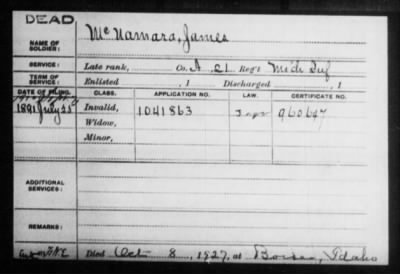 DEAD
NAME OF SOLDIER: McNamara, James
SERVICE: Late rank, Co. A 21 Reg't Mich Inf
TERM OF SERVICE: Enlisted , 1 Discharged , 1
DATE OF FILING. CLASS. APPLICATION NO. LAW. CERTIFICATE NO.
1891 July 25 Invalid, 1041863 960647
Widow,
Minor,
ADDITIONAL SERVICES:
REMARKS:
Died Oct 8, 1927, at Boise, Idaho